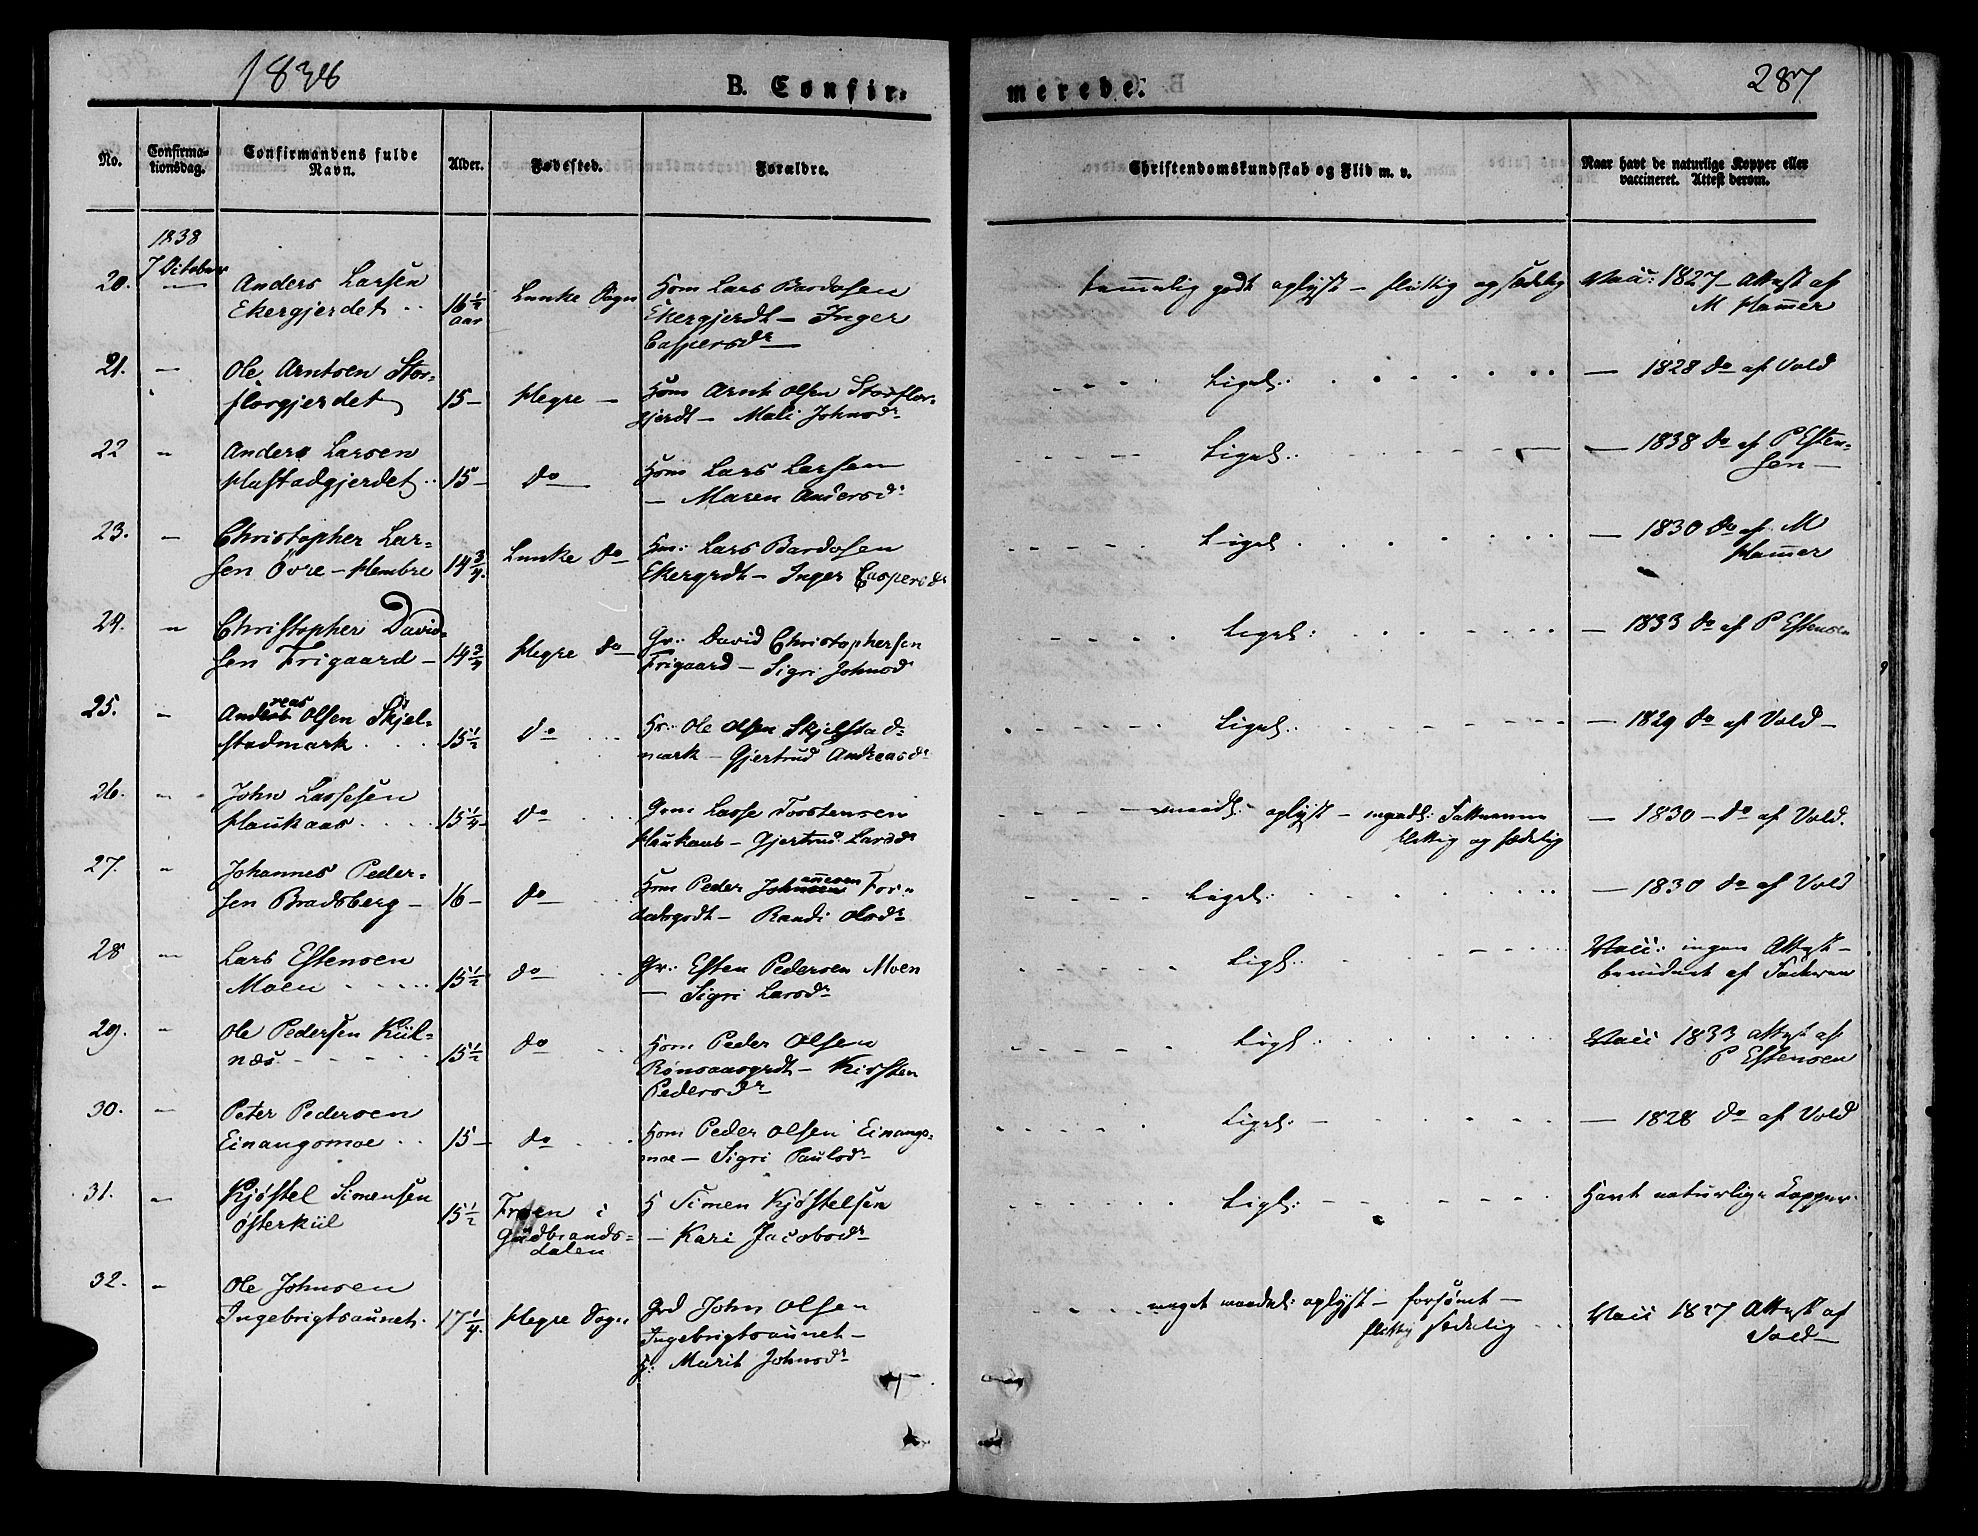 1838
B. Confir-
merede.
287
No.
Confirma-
tionsdag.
Confirmandens fulde
Navn.
Alder.
Fødested.
Forældre.
Christendomskundskab og Flid m. v.
Naar havt de naturlige Kopper eller
vaccineret. Attest derom.
1838
7 October
20. — Anders Larsen
Ekergjerdet 16½ aar Lunke Sogn
Hsm Lars Bardosen
Ekergjerdt — Inger
Caspersdr
temmelig godt oplyst — flittig og sædelig
Vacc: 1827 — Attest af
M Hammer
21. — Ole Arntsen Stor-
florgjerdet 15 — Hegre —
Hsm Arnt Olsen Storflor-
gjerdt — Mali Johnsdr
Ligel:
— 1828 do af Vold
22 " Anders Larsen
Hustadgjerdet 15 — do
Hsm Lars Larsen
— Maren Andersdr
Ligel:
— 1838 do af P Esten-
sen —
23. — Christopher Lar-
sen Övre-Hembre 14¾ Lunke do
Hsm: Lars Bardosen
Ekergrdt — Inger Caspersdr
Ligel
— 1830 do af M
Hammer
24. " Christopher David-
sen Trigaard — 14¾ Hegre do
Gr: David Christophersen
Trigaard — Sigri Johnsdr
Ligel:
— 1833 do af P Estensen
25. " Andreas Olsen Skjel-
stadmark 15½ do
Hr: Ole Olsen Skjelstad-
mark — Gjertrud Andreasdr
Ligel:
— 1829 do af Vold —
26. " John Lassesen
Haukaas 15¼ do
Grm Lasse Torstensen
Haukaas — Gjertrud Larsdr
— maadel: oplyst —
flittig og sædelig
— 1830 — do af Vold.
27. " Johannes Peder-
sen Bradsberg — 16 — do
Hsm Peder Johannesen For-
dalsgrdt — Randi Olsdr
Ligel:
— 1830 do af Vold
28 " Lars Estensen
Moen 15½ do
Gr: Esten Pedersen Moen
— Sigri Larsdr
Ligl:
Vacc: ingen Attest —
bevidnet af Faderen
29. " Ole Pedersen Kiil-
næs 15½ do
Hsm Peder Olsen
Rönsaasgrdt — Kirsten
Pedersdr
Ligl:
Vacc 1833 attest af
P Estensen
30. — Peter Pedersen
Einangsmoe 15 — do
Hsm Peder Olsen Einangs-
moe — Sigri Paulsdr
Ligel: —
— 1828 do af Vold
31. " Kjøstel Simensen
Østerkiil 15½ Froen i
Gudbrands-
dalen
H Simen Kjøstelsen
— Kari Jacobsdr
Ligl:
Havt naturlige Kopper.
32. " Ole Johnsen
Ingebrigtsaunet. 17¼ Hegre Sogn
Grd John Olsen
Ingebrigtsaunet —
H: Marit Johnsdr
meget maadel: oplyst — forsömt —
flittig sædelig
Vacc 1827 Attest af
Vold —